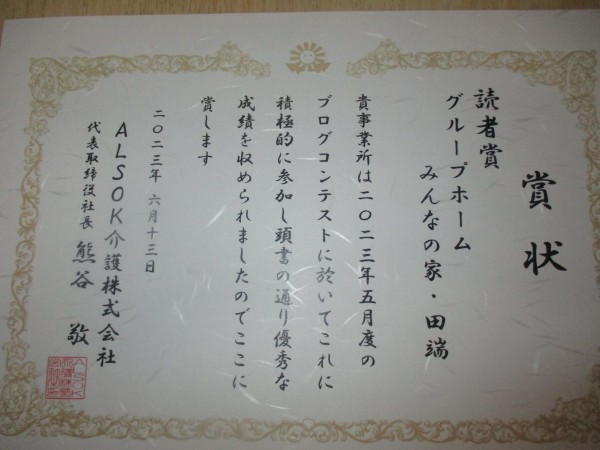 賞状
読者賞
グループホーム
みんなの家・田端
貴事業所は二〇二三年五月度の
ブログコンテストに於いてこれに
積極的に参加し頭書の通り優秀な
成績を収められましたのでここに
賞します
二〇二三年 六月十三日
ALSOK介護株式会社
代表取締役社長 熊谷 敬